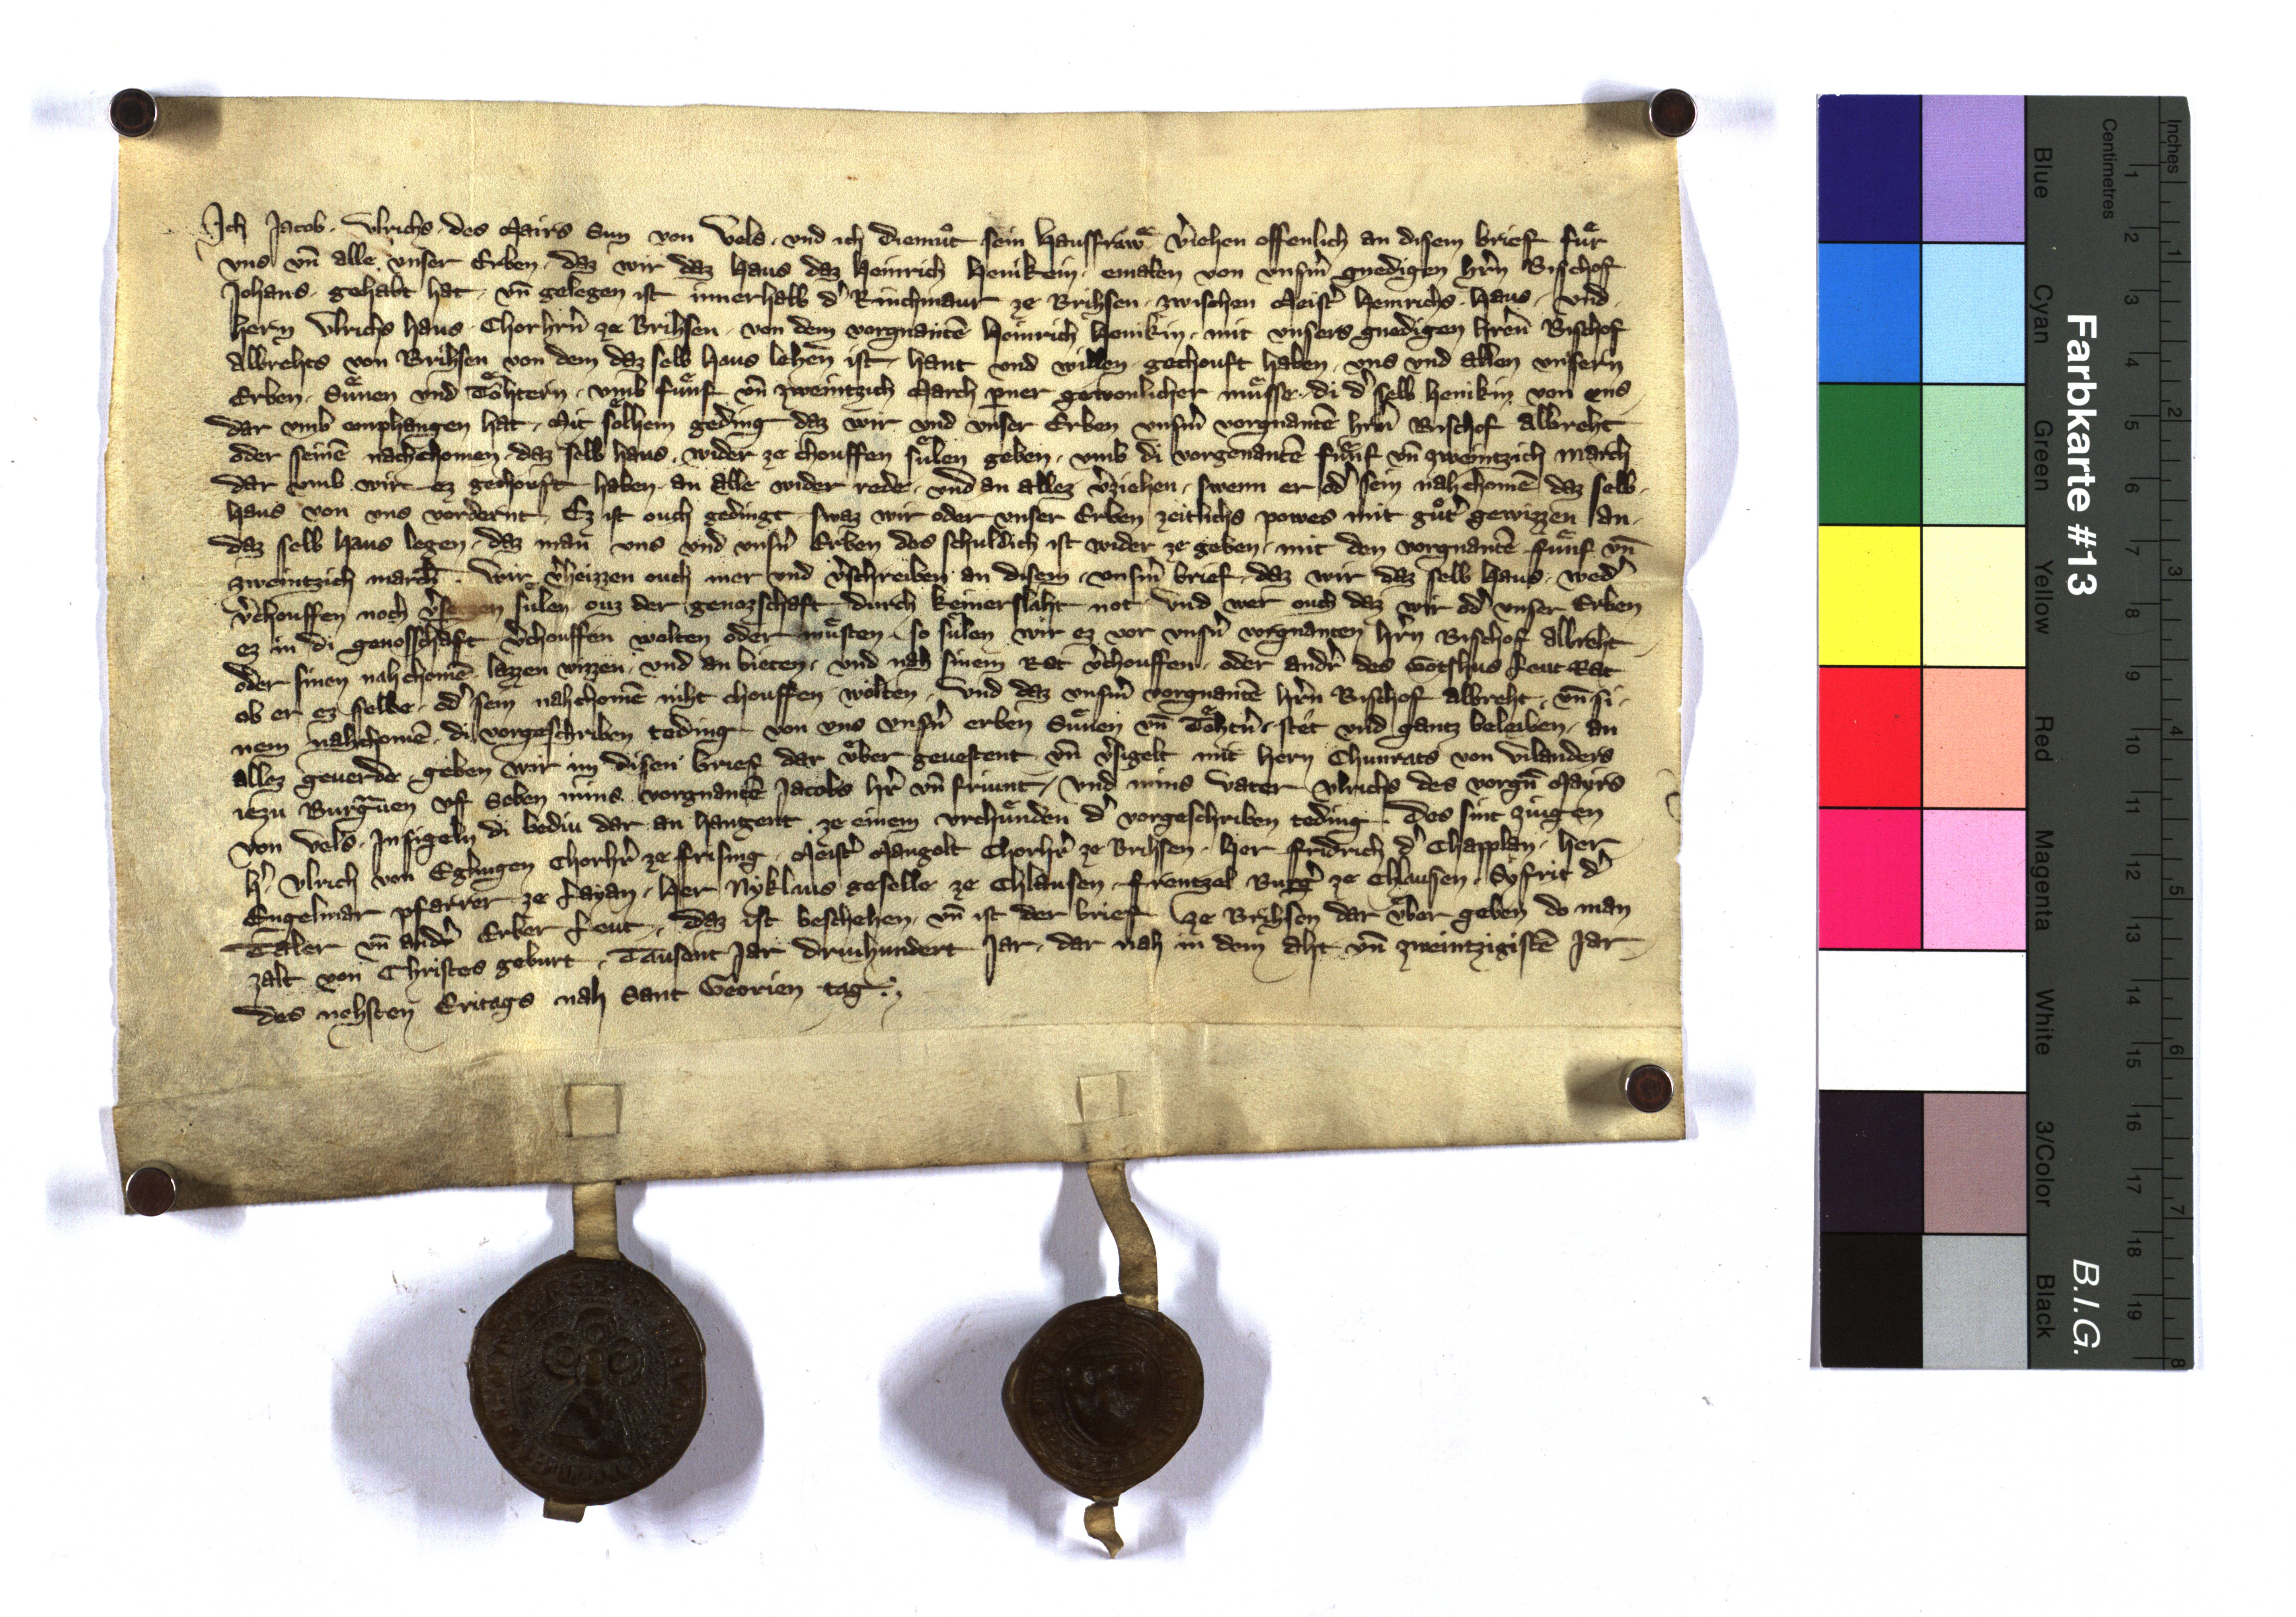 Ich Jacob. Vlrichs. des Mairs Sun von Vels. vnd ich Diemuͦt sein Hausfrawͤ v̓iehen offenlich an disem brief fuͤr
vns vn̄ alle vnser Erben. daz wir daz Haus daz Heinrich Henikein. emaln von vnsm̓ gnedigen hr̓n Bischof
Johans. gehabt hat. vn̄ gelegen ist innerhalb d̓ Rinchmaur ze Brihsen. zwischen Meist̓ Heinrichs. Haus. vnd.
hern Vlrichs haus. Chorhr̓n ze Brihsen. von dem vorgnantē Heinrich Henikin. mit vnsers gnedigen hren̓ Bischof
Albrehts von Brihsen von dem daz selb Haus lehen ist. hant vnd willen gechouft haben. vns vnd allen vnsern
Erben. Suͤnen vnd Toͤhtern. vmb fuͤnf vn̄ zweintzich March p̄ner gewonlicher muͤsse. di d̓ selb henikin von vns
dar vmb emphangen hat. Mit soͤlhem geding daz wir vnd vnser Erben vnsm̓ vorgnantē hr̓n Bischof Albreht
oder seinē nachchomen. daz selb haus. wider ze chouffen suͤlen geben. vmb di vorgenantē fuͤnf vn̄ zweintzich march
dar vmb wir ez gechouft haben. an alle wider rede. vnd an allez v̓ziehen. swenn er od̓ sein nahchomē daz selb.
haus von vns vordernt. Ez ist ouch gedingt. swaz wir oder vnser Erben zeitlichs powes mit guͦt̓ gewizzen an.
daz selb Haus legen. daz man vns vnd vnsn̓ Erben des schuldich ist wider ze geben. mit den vorgnantē fuͤnf vn̄
zweintzich march. Wir v̓heizzen ouch mer vnd v̓schreiben an disem. vnsm̓ brief. daz wir daz selb Haus. wed̓
v̓chouffen noch v̓setzen sulen ouz der genozschaft durch keinerslaht not. Vnd wer ouch daz wir od̓ vnser Erben
ez in di genosschaft v̓chouffen wolten oder muͤsten. so suͤlen wir ez vor vnsn̓ vorgnanten hr̓n Bischof Albreht
oder sinen nahchomē lazzen wizzen. vnd an bieten. vnd nah sinem Rat v̓chouffen. oder andr̓ des Gotshus Leut Rat
ob er ez selbe. od̓ sein nahchomē niht chouffen wolten. Vnd daz vnsm̓ vorgnantē hr̓n Bischof Albreht. vn̄ si.
nem nahchomē. di vorgeschriben teding von vns vnsn̓ erben Suͤnen vn̄ Toͤhtn̓. stet vnd gantz beleiben. an
allez geuerde. geben wir im disen brief dar vͤber geuestent vn̄ v̓sigelt mit hern Chunrats von Vilanders
iezu Burgrauen vf Seben mins vorgnantē Jacobs hr̓ vn̄ friunt. vnd mins vater Vlrichs des vorgn̄ Mayrs
von Vels. Insigeln di bediu dar an hangent. ze einem vrchuͤnden d̓ vorgeschriben teding. Des sint ziugen
h̓. Vlrich von Eglingen Chorhr̓ ze frising. Meist̓ Mangolt Chorhr̓ ze Brihsen. Her fridrich d̓ Chapplan. Her
Engelmar pfarrer ze Layan. Her Nyklaus geselle ze Chlausen. Frentzel Burg̓ ze Chlausen. Syfrit d̓
Taler vn̄ andr̓ Erber Leut. Daz ist beschehen. vn̄ ist der brief ze Brihsen dar vͤber geben do man
zalt von Christes geburt. Tausent Jar driuhundert Jar. dar nah in dem aht vn̄ zweintzigistē Jar
des nehsten Eritags nah Sant Georien tag.
Farbkarte #13
B.I.G.
Blue
Cyan
Green
Yellow
Red
Magenta
White
3/Color
Black
Centimetres
1 2 3 4 5 6 7 8 9 10 11 12 13 14 15 16 17 18 19
Inches
1 2 3 4 5 6 7 8